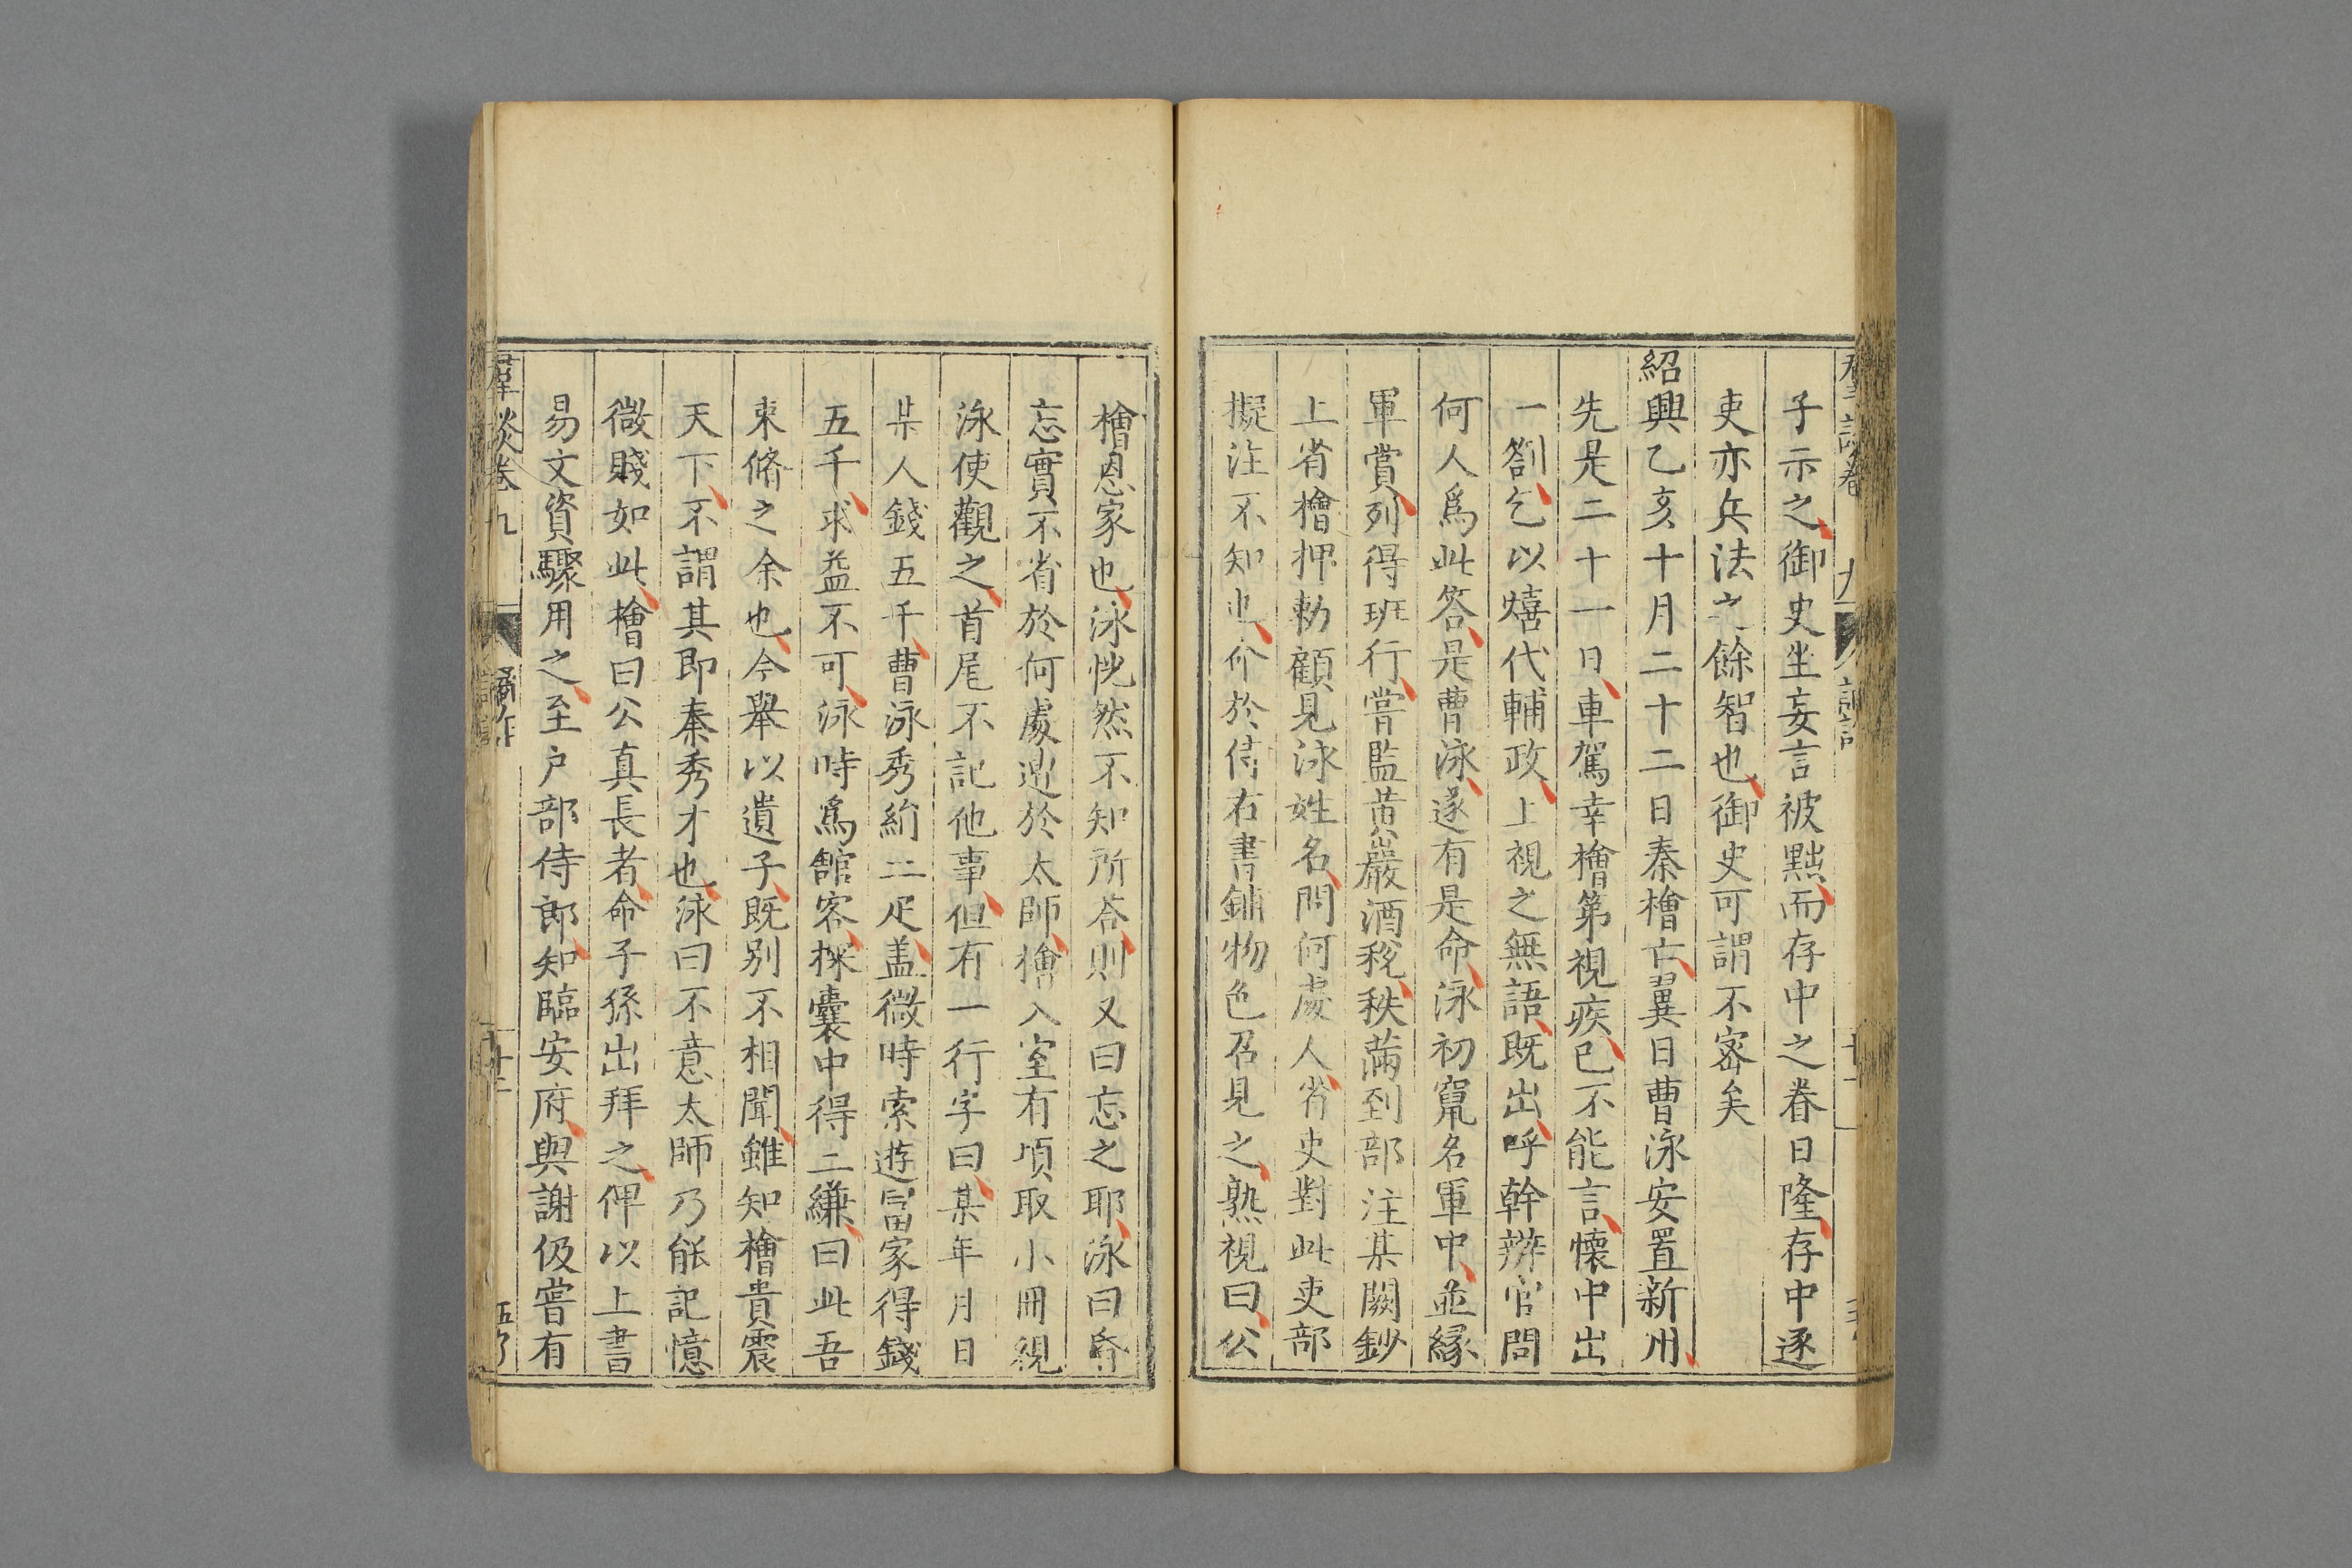 子示之御史坐妄言被黜而存中之眷日隆存中逐
吏亦兵法之餘智也御史可謂不密矣
紹興乙亥十月二十二日秦檜亡翼日曹泳安置新州
先是二十一日車駕幸檜第視疾已不能言懷中出
一劄乞以熺代輔政上視之無語既出呼幹辦官問
何人爲此答是曹泳遂有是命泳初竄名軍中並緣
軍賞列得班行嘗監黃巖酒稅秩滿到部注某闕鈔
上省檜押勑顧見泳姓名問何處人省吏對此吏部
擬注不知也於侍右書鋪物色召見之熟視曰公
檜恩家也泳恍然不知所荅則又曰忘之耶泳曰昏
忘實不省於何處遭於太師檜入室有頃取小冊視
泳使觀之首尾不記他事但有一行字曰某年月日
某人錢五千曹泳秀絹二疋盖微時索遊富家得錢
五千求益不可泳時爲館客探囊中得二縑曰此吾
束脩之余也今舉以遺子既别不相聞雖知檜貴震
天下不謂其即秦秀才也泳曰不意太師乃能記憶
微賤如此檜曰公真長者命子孫出拜之俾以上書
易文資驟用之至户部侍郎知臨安府與謝伋嘗有
羣談卷九